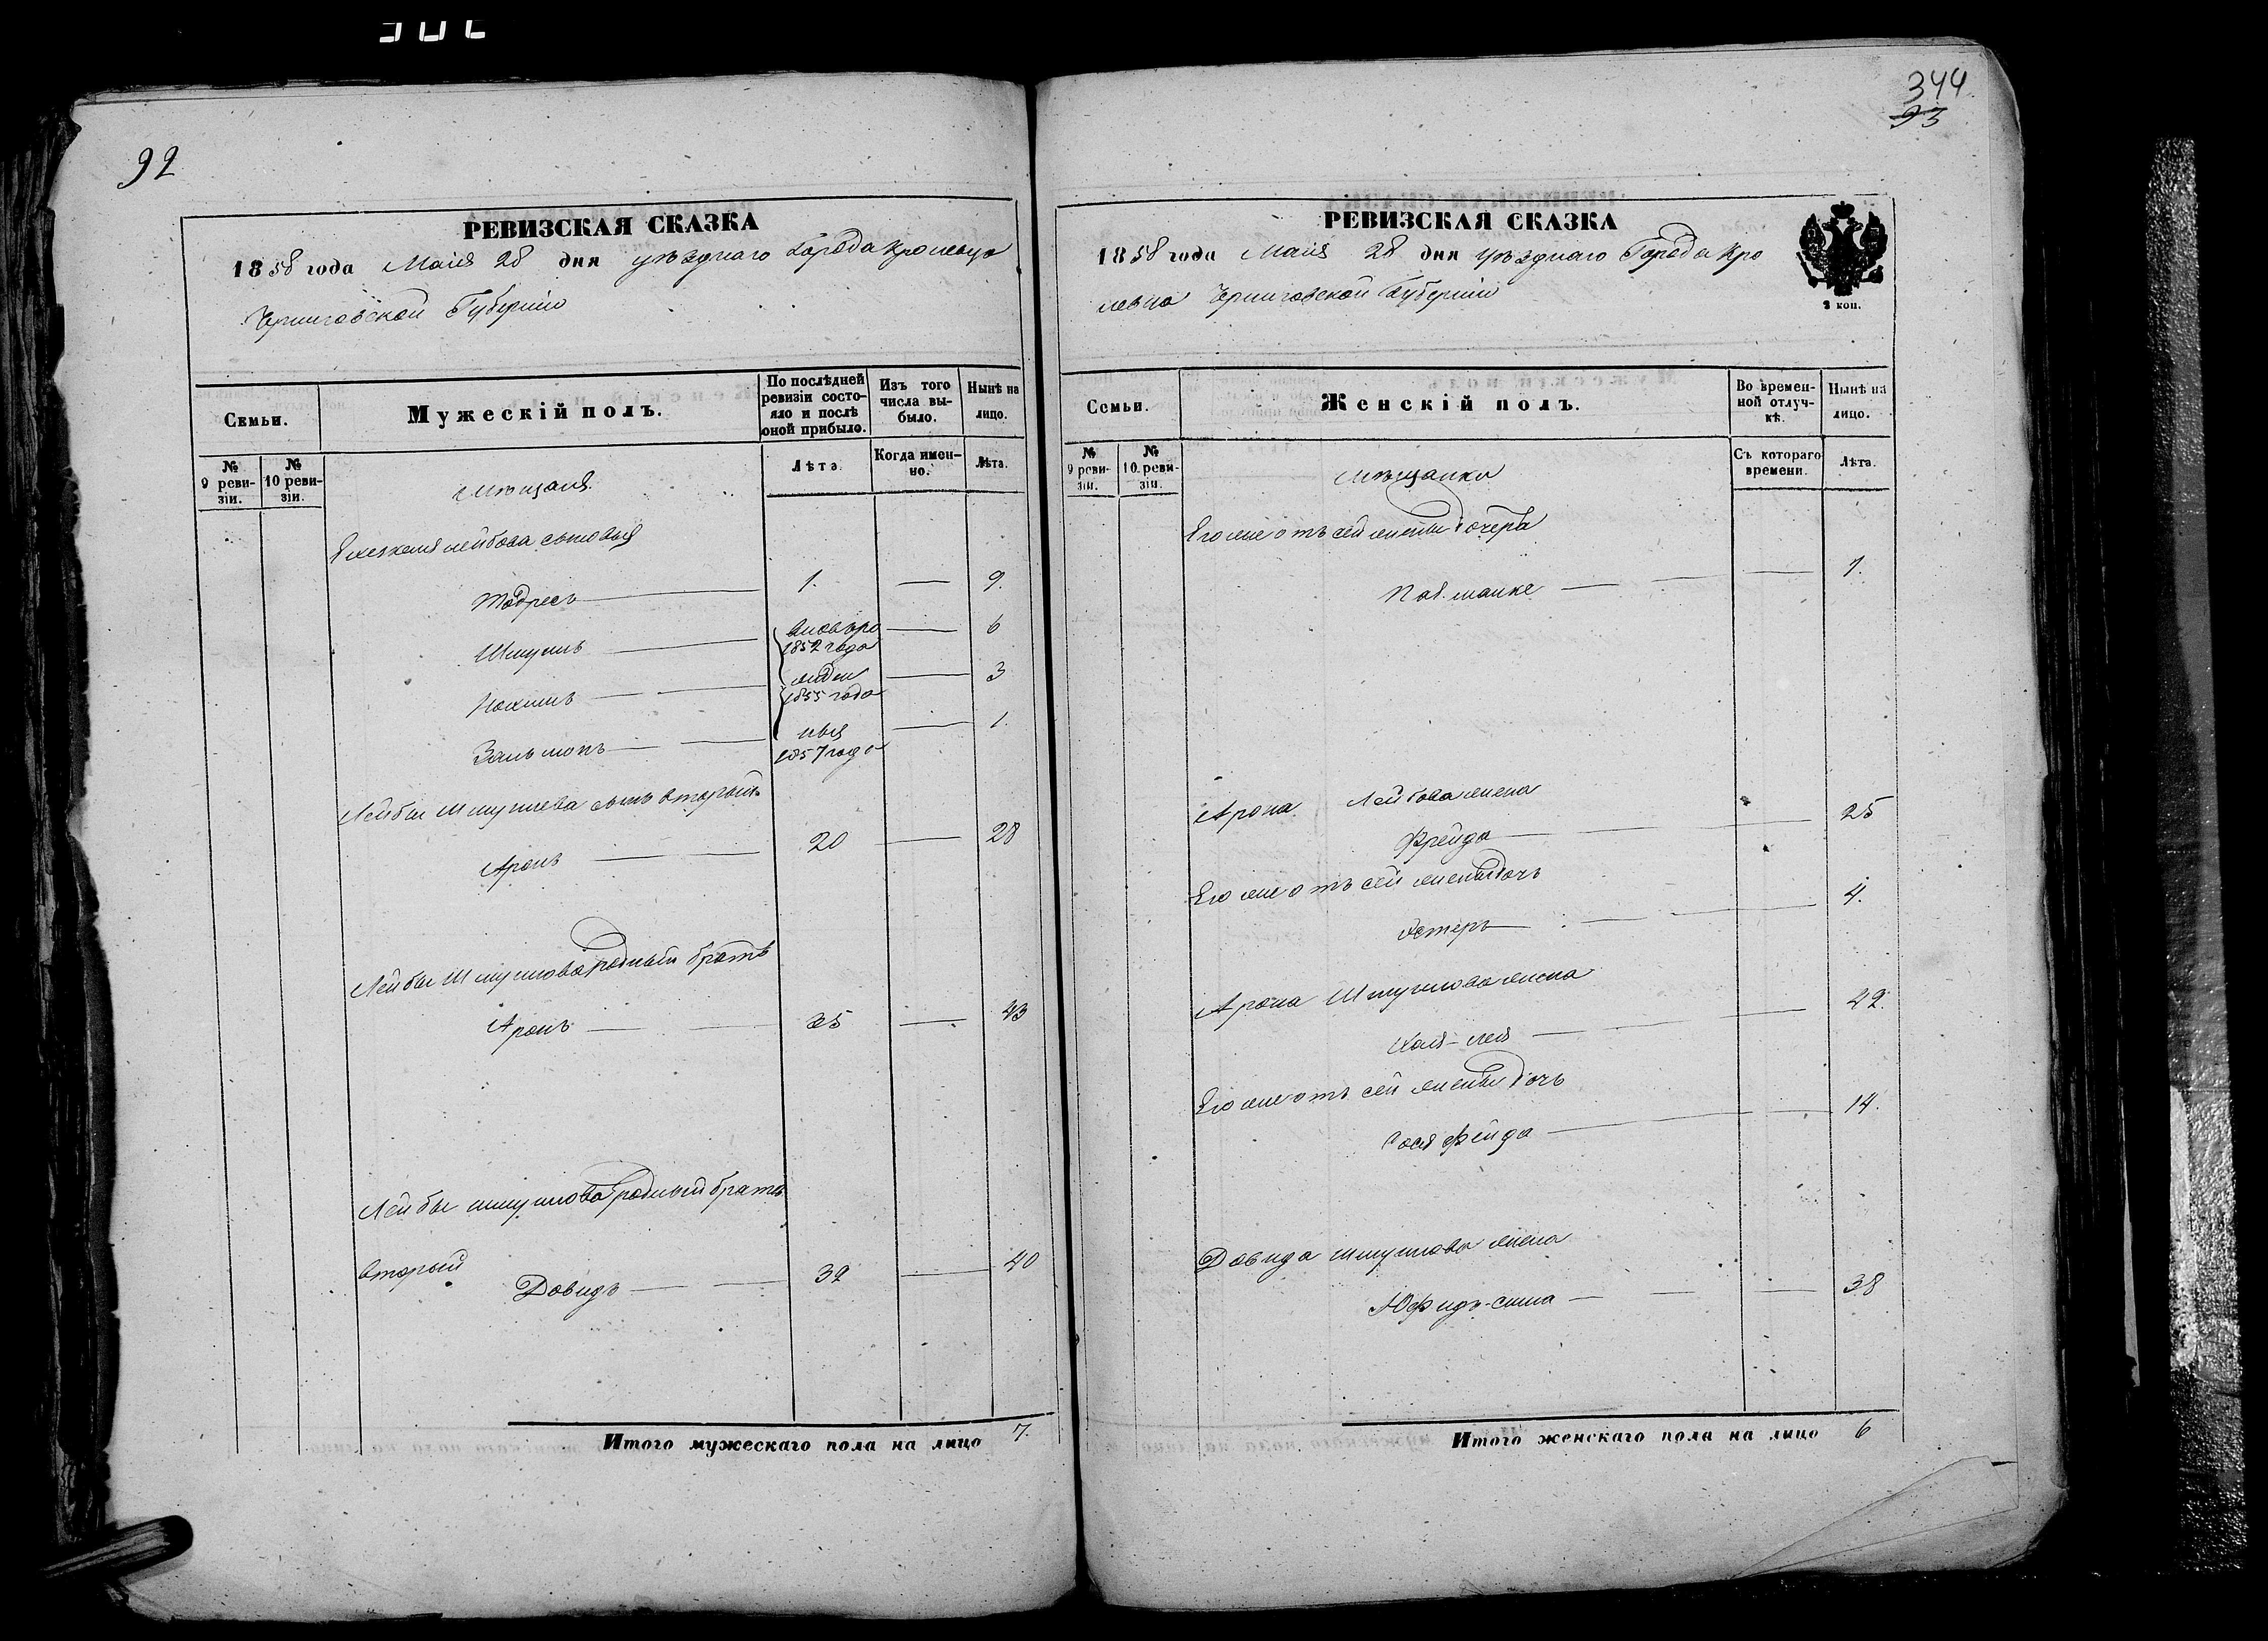 92
РЕВИЗСКАЯ СКАЗКА
1858 года Маія 28 дня уѣзднаго Города Кролевца
Черниговской Губерніи
Семьи.
Мужескій полъ.
По послѣдней ревизіи состояло и послѣ оной прибыло.
Изъ того числа выбыло.
Нынѣ на лицо.
№ 9 ревизіи.
№ 10 ревизіи.
Лѣта.
Когда именно.
Лѣта.
Мѣщаня.
Лейбова сыновья
Тодресъ 1. — 9.
Шмуиль 1852 года — 6
Нохимъ 1855 года — 3
Зальмонъ 1857 года — 1.
Лейбы Шмуилева сынъ вторый
Аронъ 20 — 28
Лейбы Шмуилова родный братъ
Аронъ 35 — 43
Лейбы Шмуилова родный братъ
вторый
Довидъ 32 — 40
Итого мужескаго пола на лицо 7.
344
93
РЕВИЗСКАЯ СКАЗКА
1858 года Маія 28 дня уѣзднаго Города Кро
левца Черниговской Губерніи
2 коп.
Семьи.
Женскій полъ.
Во временной отлучкѣ.
Нынѣ на лицо.
№ 9 ревизіи.
№ 10. ревизіи.
Съ котораго времени.
Лѣта.
Мѣщанки
Его же отъ сей жены дочерь
— 1.
Арона Лейбова жена
Фрейда — 25
Его же отъ сей жены дочь
Естеръ — 4.
Арона Шмуилова жена
Хая-лея — 42.
Его же отъ сей жены дочь
Фейда — 14.
Довида Шмуилова жена
Юфидъ-сима — 38
Итого женскаго пола на лицо 6